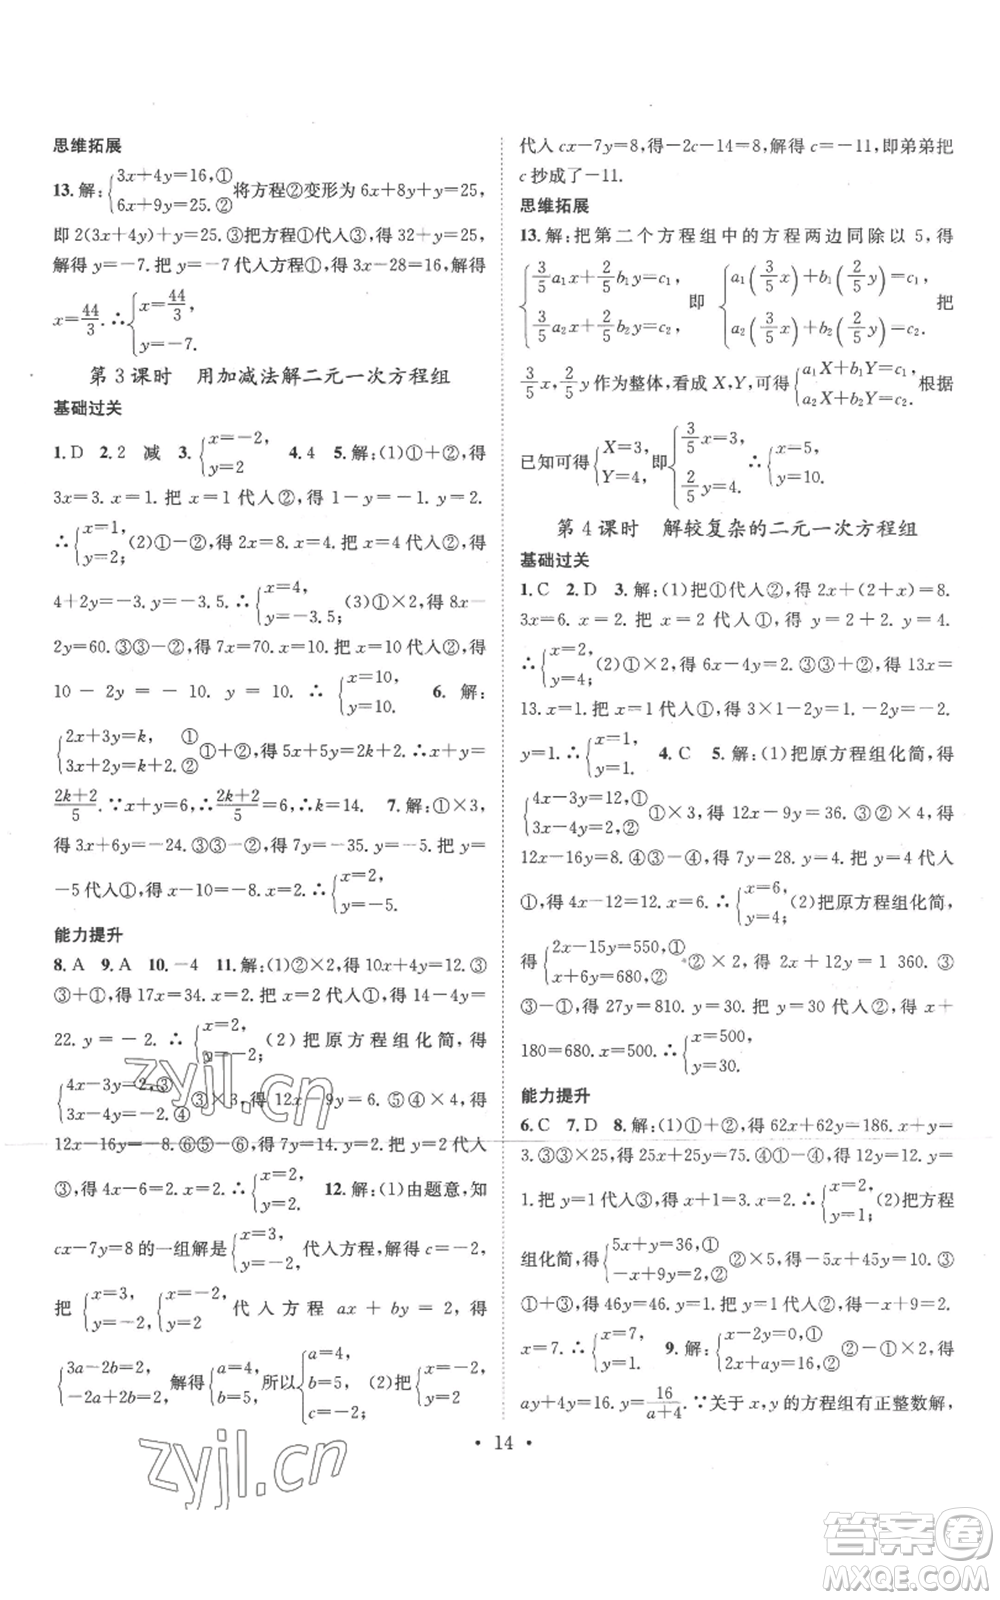 思维拓展
13. 解: {3x+4y=16,① 6x+9y=25.② 将方程②变形为 6x+8y+y=25,
即 2(3x+4y)+y=25. ③把方程①代人③,得 32+y=25,
解得 y=-7. 把 y=-7 代人方程①,得 3x-28=16,解得
x=44/3. ∴{x=44/3, y=-7.
第 3 课时 用加减法解二元一次方程组
基础过关
1. D 2. 2 减 3. {x=-2, y=2 4. 4 5. 解:(1)①+②,得
3x=3. x=1. 把 x=1 代人②,得 1-y=-1. y=2.
∴{x=1, y=2; (2)①-②,得 2x=8. x=4. 把 x=4 代人②,得
4+2y=-3. y=-3.5. ∴{x=4, y=-3.5; (3)①×2,得 8x-
2y=60. ③③-②,得 7x=70. x=10. 把 x=10 代人②,得
10-2y=-10. y=10. ∴{x=10, y=10. 6. 解:
{2x+3y=k, ① 3x+2y=k+2. ② ①+②,得 5x+5y=2k+2. x+y=
2k+2/5. ∵x+y=6,∴2k+2/5=6,∴k=14. 7. 解:①×3,得
3x+6y=-24. ③③-②,得 7y=-35. y=-5. 把 y=
-5 代人①,得 x-10=-8. x=2. ∴{x=2, y=-5.
能力提升
8. A 9. A 10. -4 11. 解:(1)②×2,得 10x+4y=12. ③
③+①,得 17x=34. x=2. 把 x=2 代人①,得 14-4y=
22. y=-2. ∴{x=2, y=-2; (2)把原方程组化简,得
{4x-3y=2,③ 3x-4y=-2.④ ③×3,得 12x-9y=6. ⑤④×4,得
12x-16y=-8. ⑥⑤-⑥,得 7y=14. y=2. 把 y=2 代人
③,得 4x-6=2. x=2. ∴{x=2, y=2. 12. 解:(1)由题意,知
cx-7y=8 的一组解是{x=3, y=-2 代人方程,解得 c=-2,
把 {x=3, y=-2, {x=-2, y=2 代人方程 ax+by=2,得
{3a-2b=2, -2a+2b=2. 解得{a=4, b=5. 所以{a=4, b=5, c=-2; (2)把{x=-2, y=2
代人 cx-7y=8,得-2c-14=8,解得 c=-11,即弟弟把
c 抄成了-11.
思维拓展
13. 解:把第二个方程组中的方程两边同除以 5,得
{3/5a₁x+2/5b₁y=c₁, 3/5a₂x+2/5b₂y=c₂ 即 {a₁(3/5x)+b₁(2/5y)=c₁, a₂(3/5x)+b₂(2/5y)=c₂. 把
3/5x,2/5y 作为整体,看成 X,Y,可得{a₁X+b₁Y=c₁, a₂X+b₂Y=c₂. 根据
已知可得{X=3, Y=4, 即{3/5x=3, 2/5y=4. ∴{x=5, y=10.
第 4 课时 解较复杂的二元一次方程组
基础过关
1. C 2. D 3. 解:(1)把①代人②,得 2x+(2+x)=8.
3x=6. x=2. 把 x=2 代人①,得 y=2+2. y=4.
∴{x=2, y=4; (2)①×2,得 6x-4y=2. ③③+②,得 13x=
13. x=1. 把 x=1 代人①,得 3×1-2y=1. -2y=-2.
y=1. ∴{x=1, y=1. 4. C 5. 解:(1)把原方程组化简,得
{4x-3y=12,① 3x-4y=2,② ①×3,得 12x-9y=36. ③②×4,得
12x-16y=8. ④③-④,得 7y=28. y=4. 把 y=4 代人
①,得 4x-12=12. x=6. ∴{x=6, y=4; (2)把原方程组化简,
得{2x-15y=550,① x+6y=680,② ②×2,得 2x+12y=1 360. ③
③-①,得 27y=810. y=30. 把 y=30 代人②,得 x+
180=680. x=500. ∴{x=500, y=30.
能力提升
6. C 7. D 8. 解:(1)①+②,得 62x+62y=186. x+y=
3. ③③×25,得 25x+25y=75. ④①-④,得 12y=12. y=
1. 把 y=1 代人③,得 x+1=3. x=2. ∴{x=2, y=1; (2)把方程
组化简,得{5x+y=36,① -x+9y=2.② ②×5,得-5x+45y=10. ③
①+③,得 46y=46. y=1. 把 y=1 代人②,得-x+9=2.
x=7. ∴{x=7, y=1. 9. 解:{x-2y=0,① 2x+ay=16,② ②-①×2,得
ay+4y=16. y=16/a+4. ∵关于 x,y 的方程组有正整数解,
• 14 •
zyjl.cn
zyjl.cn
答案卷
MXQE.COM